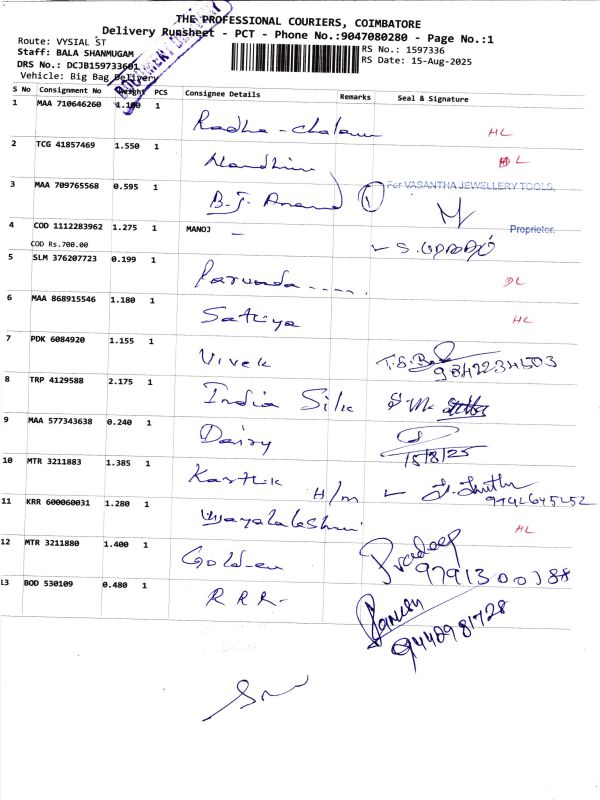 THE PROFESSIONAL COURIERS, COIMBATORE
Delivery Runsheet - PCT - Phone No.:9047080280 - Page No.:1
Route: VYSIAL ST
RS No.: 1597336
Staff: BALA SHANMUGAM
RS Date: 15-Aug-2025
DRS No.: DCJB159733601
Vehicle: Big Bag Delivery
S No Consignment No Weight PCS Consignee Details Remarks Seal & Signature
1 MAA 710646260 1.100 1 Radha - HL
2 TCG 41857469 1.550 1 Nandhini DL
3 MAA 709765568 0.595 1 B.J. Anand 1 For VASANTHA JEWELLERY TOOLS,
Proprietor.
4 COD 1112283962 1.275 1 MANOJ
COD Rs.700.00
5 SLM 376207723 0.199 1 DL
6 MAA 868915546 1.180 1 Sathya HL
7 PDK 6084920 1.155 1 Vivek T.S. 9842234503
8 TRP 4129588 2.175 1 India Silk
9 MAA 577343638 0.240 1 Dairy
15/8/25
10 MTR 3211883 1.385 1 Karthik H/m
11 KRR 600060031 1.280 1 HL
12 MTR 3211880 1.400 1 Golden Pradeep
13 BOD 530109 0.480 1 R R R -